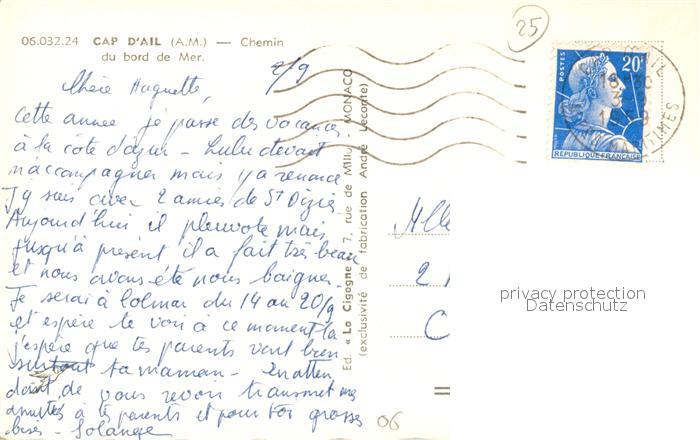 06.032.24 CAP D'AIL (A.M.) — Chemin
du bord de Mer.
25
2/9
Chère Huguette,
Cette année je passe des vacances
à la côte d'azur - Lulu devait
m'accompagner mais y a renoncé
J'y suis avec 2 amies de St Dizier
Aujourd'hui il pleuvote mais
jusqu'à présent il a fait très beau
et nous avons été nous baigner.
Je serai à Colmar du 14 au 20/9
et espère te voir à ce moment là
j'espère que tes parents vont bien
surtout ta maman - En atten
dant de vous revoir transmet mes
amitiés à tes parents et pour toi grosses
bises - Solange
06
Ed. « La Cigogne », 7, rue de Milly MONACO
(exclusivité de fabrication André Leconte)
POSTES
20F
REPUBLIQUE FRANÇAISE
Mlle
2
C
privacy protection
Datenschutz